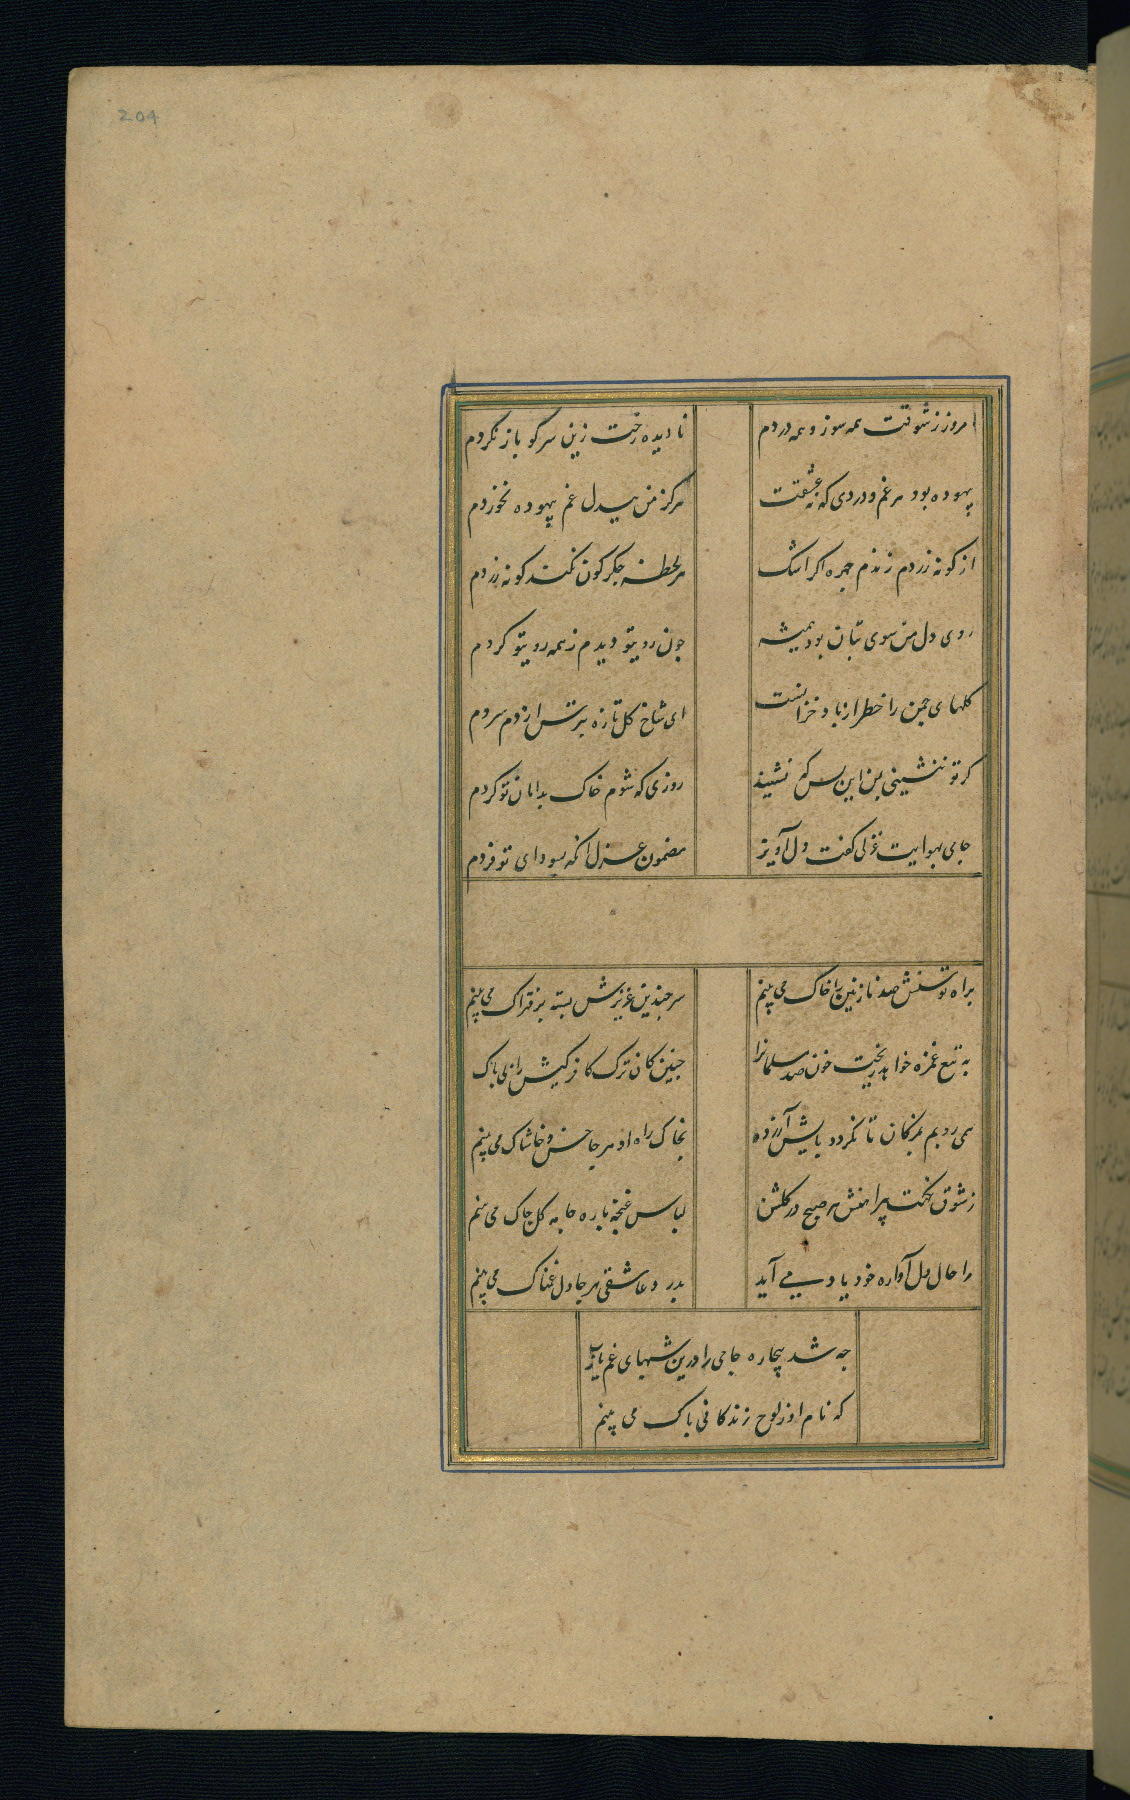 204
امروز ز شوقت همه سوز و همه دردم
نادیده رخت زین سر کو باز نکردم
بیهوده بود هر غم و دردی که نه عشقت
هرکز من بیدل غم بیهوده نخوردم
از کونه زردم نزندم چهره اکر اشک
هر لحظه جکرکون نکند کونه زردم
روی دل من سوی بتان بود همیشه
چون روی تو دیدم ز همه روی تو کردم
کلهای چمن را خطر از باد خزانست
ای شاخ کل تازه بترس از دم سردم
کر تو ننشینی بمن این بس که نشیند
روزی که شوم خاک بدامان تو کردم
جامی بهوایت غزلی کفت دل آویز
مضمون غزل آنکه بسودای تو فردم
براه توسنش صد نازنین را خاک می بینم
سر چندین عزیزش بسته بر فتراک می بینم
به تیغ غمزه خواهد ریخت خون صد مسلمانرا
چنین کان ترک کافر کیش را بی باک
همی روبم بمژکان تا نکردد پایش آزرده
بخاک راه او هر جا خس و خاشاک می بینم
ز شوق نکهت پیراهنش هر صبح در کلشن
لباس غنچه پاره جامه کل چاک می بینم
مرا حال دل آواره خود یاد می آید
بدرد عاشقی هر جا دل غمناک می بینم
چه شد بیچاره جامی را درین شبهای غم یارب
که نام او ز لوح زندکانی پاک می بینم